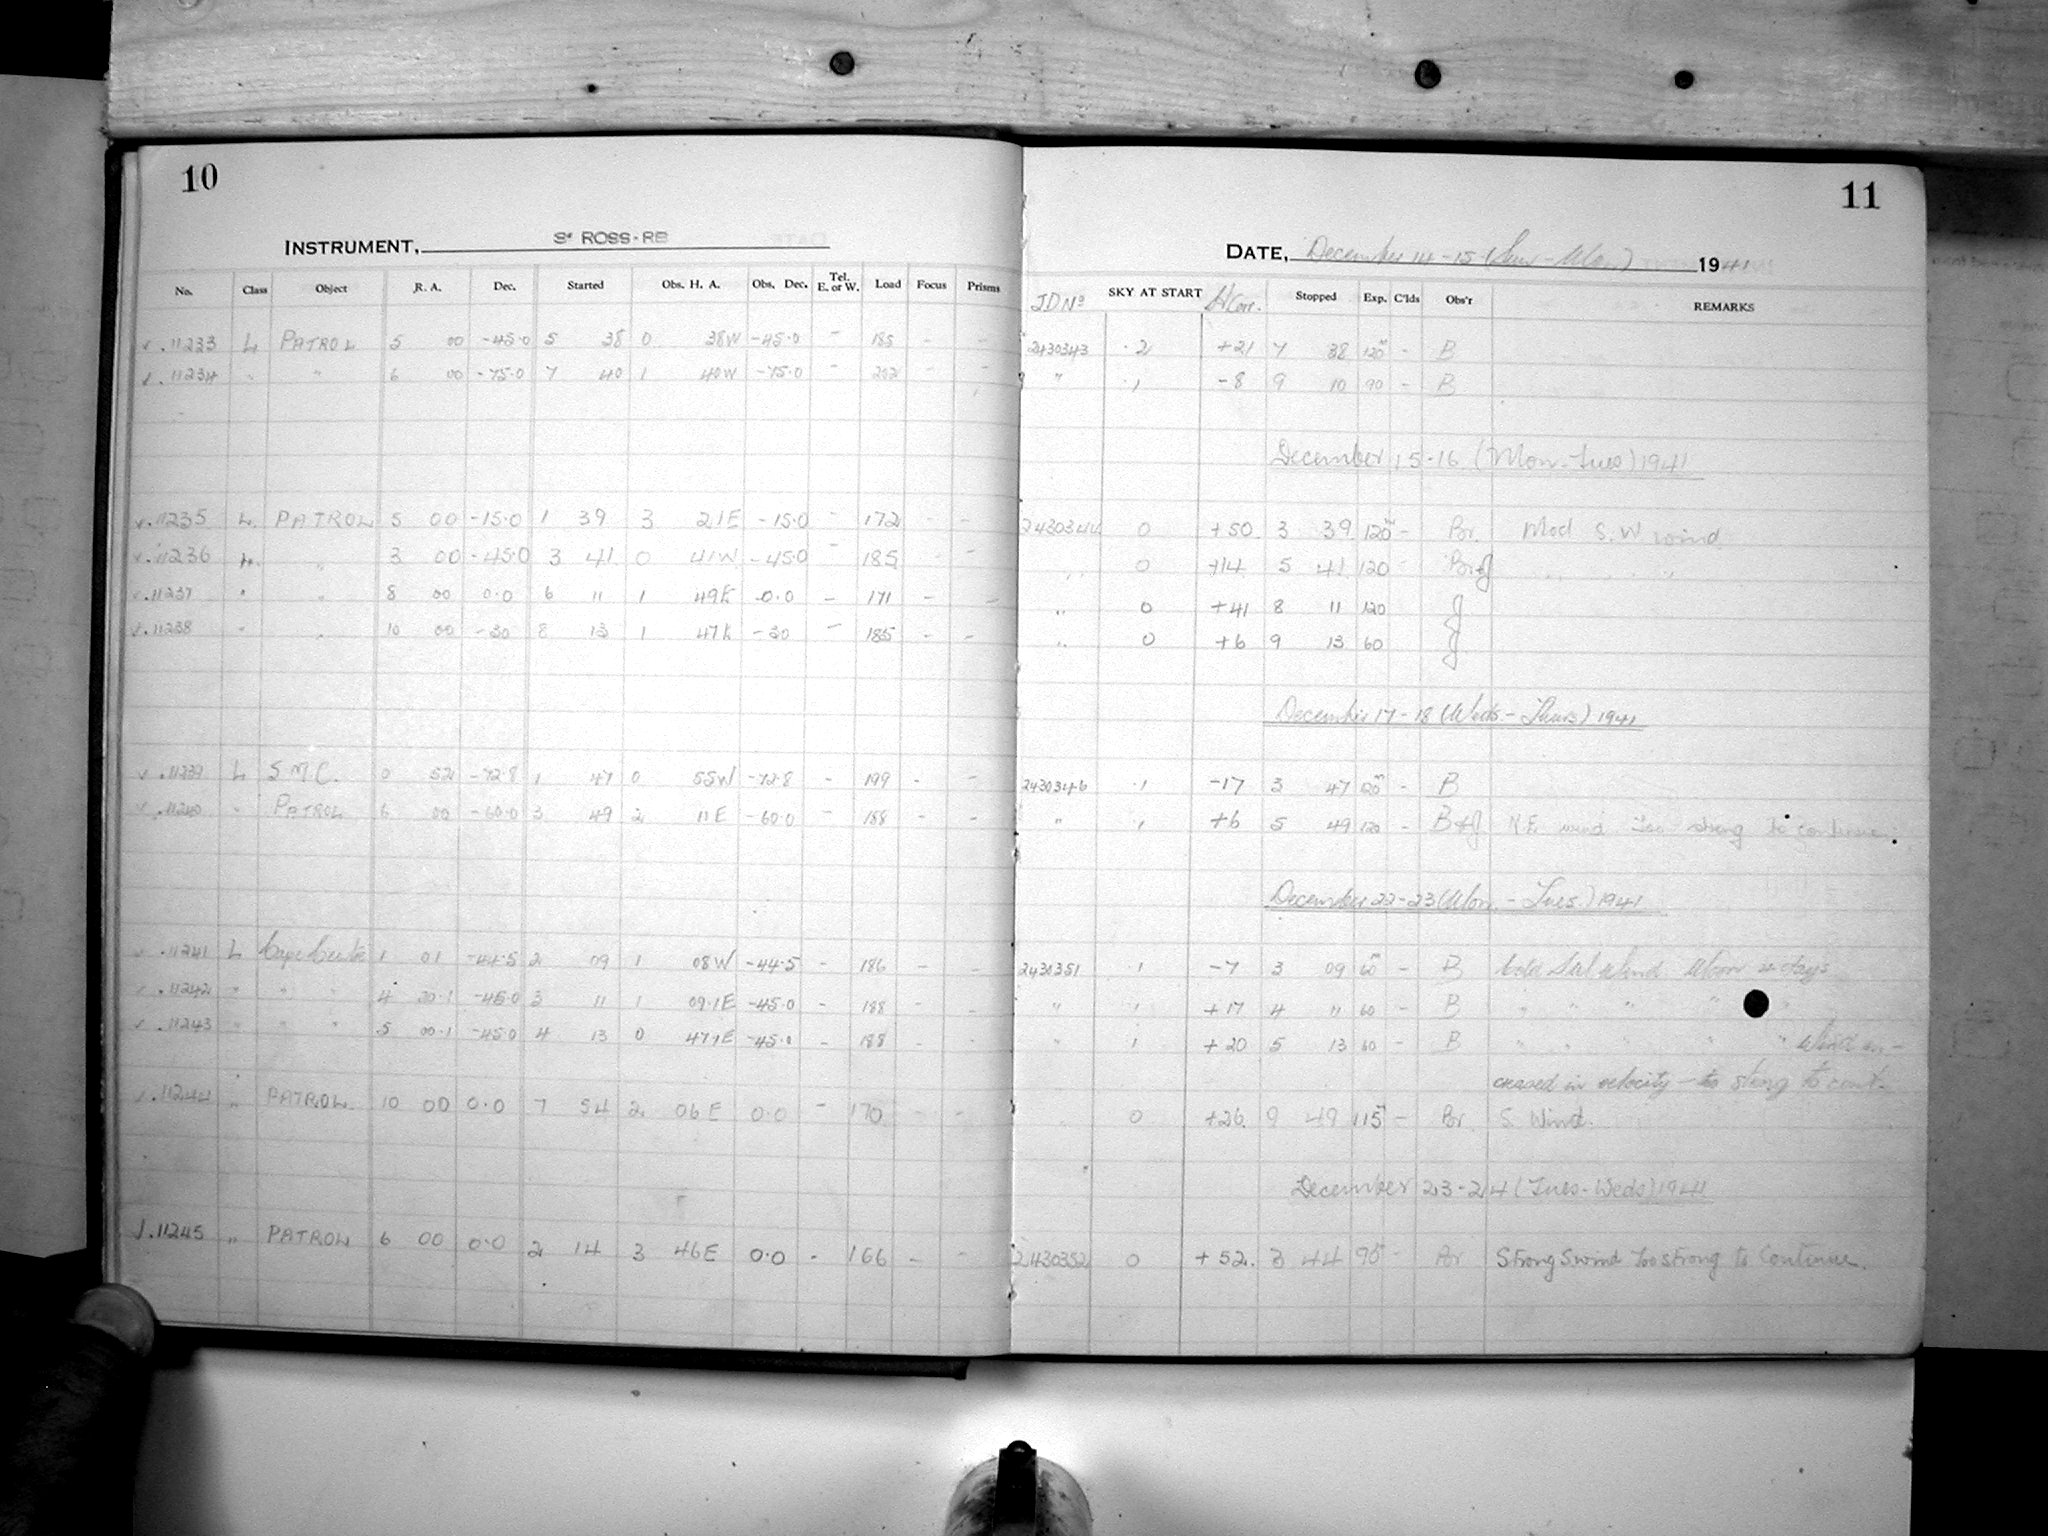 10
INSTRUMENT, ROSS-RB
No. Class Object R. A. Dec. Started Obs. H. A. Obs. Dec. Tel. E. or W. Load Focus Prisms
11233 L PATROL 5 00 -45.0 5 38 0 38W -45.0 - 185 - -
11234 " " 6 00 -75.0 7 40 1 40W -75.0 - 202 - -
11235 L. PATROL 5 00 -15.0 1 39 3 21E -15.0 - 172 - -
11236 L. " 3 00 -45.0 3 41 0 41W -45.0 - 185 - -
11237 " " 8 00 0.0 6 11 1 49E 0.0 - 171 - -
11238 " " 10 00 -30 8 13 1 47E -30 - 185 - -
11239 L S.M.C. 0 52 -72.8 1 47 0 55W -72.8 - 199 - -
11240 " PATROL 6 00 -60.0 3 49 2 11E -60.0 - 188 - -
11241 L 1 01 -44.5 2 09 1 08W -44.5 - 186 - -
11242 " " " 4 20.1 -45.0 3 11 1 09.1E -45.0 - 188 - -
11243 " " " 5 00.1 -45.0 4 13 0 47.1E -45.0 - 188 - -
11244 " PATROL 10 00 0.0 7 54 2 06E 0.0 - 170 - -
11245 " PATROL 6 00 0.0 2 14 3 46E 0.0 - 166 - -
11
DATE, December 14-15 (Sun-Mon) 1941
JD No SKY AT START H Corr. Stopped Exp. C'lds Obs'r REMARKS
2430343 .2 +21 7 38 120m - B
" .1 -8 9 10 90 - B
December 15-16 (Mon-Tues) 1941
2430344 0 +50 3 39 120m - Br. Mod S.W wind
" 0 +14 5 41 120 - Br+J " " "
" 0 +41 8 11 120 J
" 0 +6 9 13 60 J
December 17-18 (Weds-Thurs) 1941
2430346 .1 -17 3 47 120m - B
" .1 +6 5 49 120 - B+J N.E. wind Too strong to continue.
December 22-23 (Mon.-Tues.) 1941
2430351 .1 -7 3 09 60m - B wind Moon 4 days
" .1 +17 4 11 60 - B " " " " "
" .1 +20 5 13 60 - B " " " " " Wind in-
creased in velocity - too strong to cont.
0 +26 9 49 115m - Br S. Wind.
December 23-24 (Tues-Weds) 1941
2430352 0 +52. 3 44 90 - Br Strong S wind too strong to Continue.